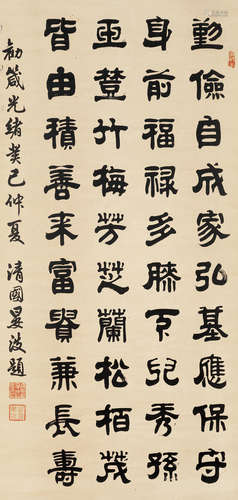 勤儉自成家弘基應保守
身前福祿多膝下兒秀孫
竹梅芳芝蘭松栢茂
皆由積善来富貴兼長壽
勧箴光緒癸巳仲夏 清國晏波題